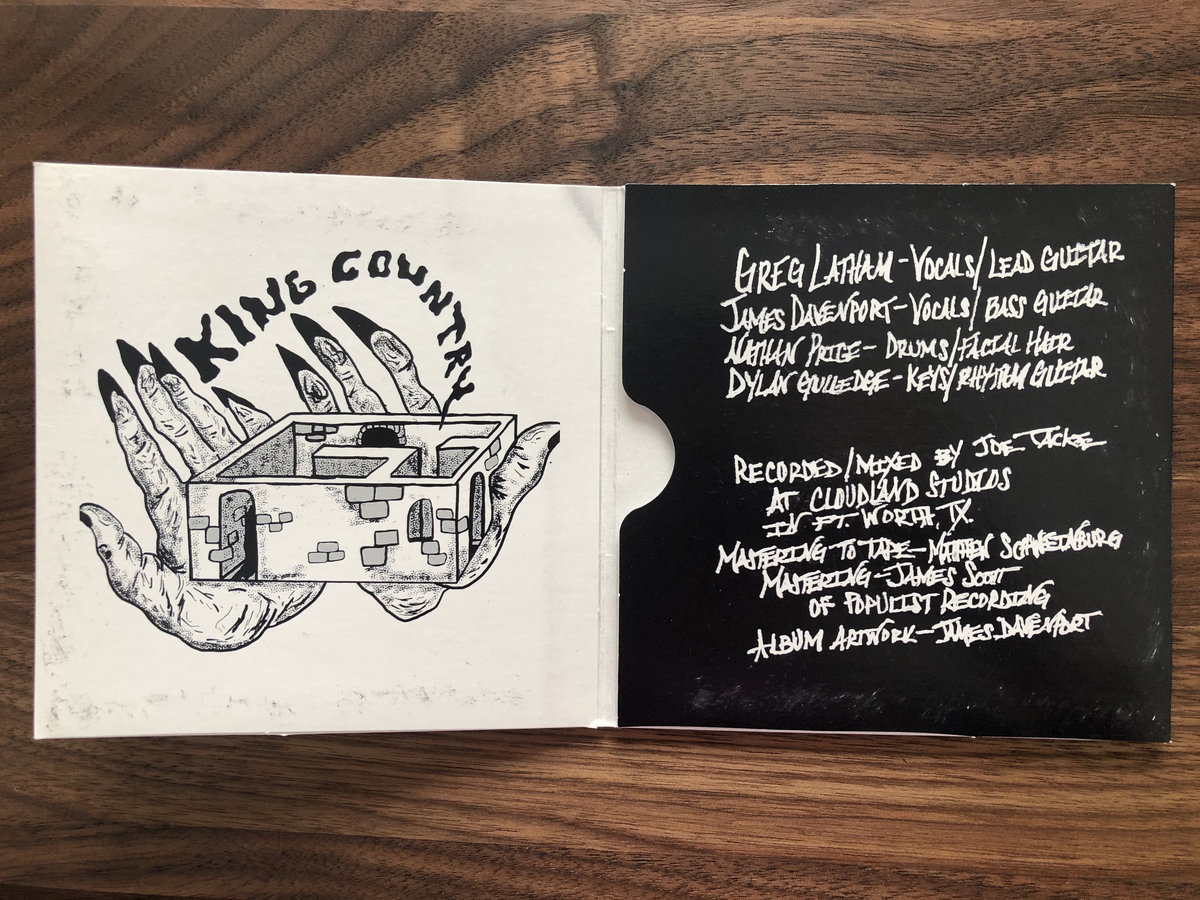 KING COUNTRY
GREG LATHAM - VOCALS/LEAD GUITAR
JAMES DAVENPORT - VOCALS/BASS GUITAR
NATHAN PRICE - DRUMS/FACIAL HAIR
DYLAN GULLEDGE - KEYS/RHYTHM GUITAR
RECORDED/MIXED BY JOE TACKE
AT CLOUDLAND STUDIOS
IN FT. WORTH, TX.
MASTERING TO TAPE -
MASTERING - JAMES SCOTT
OF POPULIST RECORDING
ALBUM ARTWORK - JAMES DAVENPORT